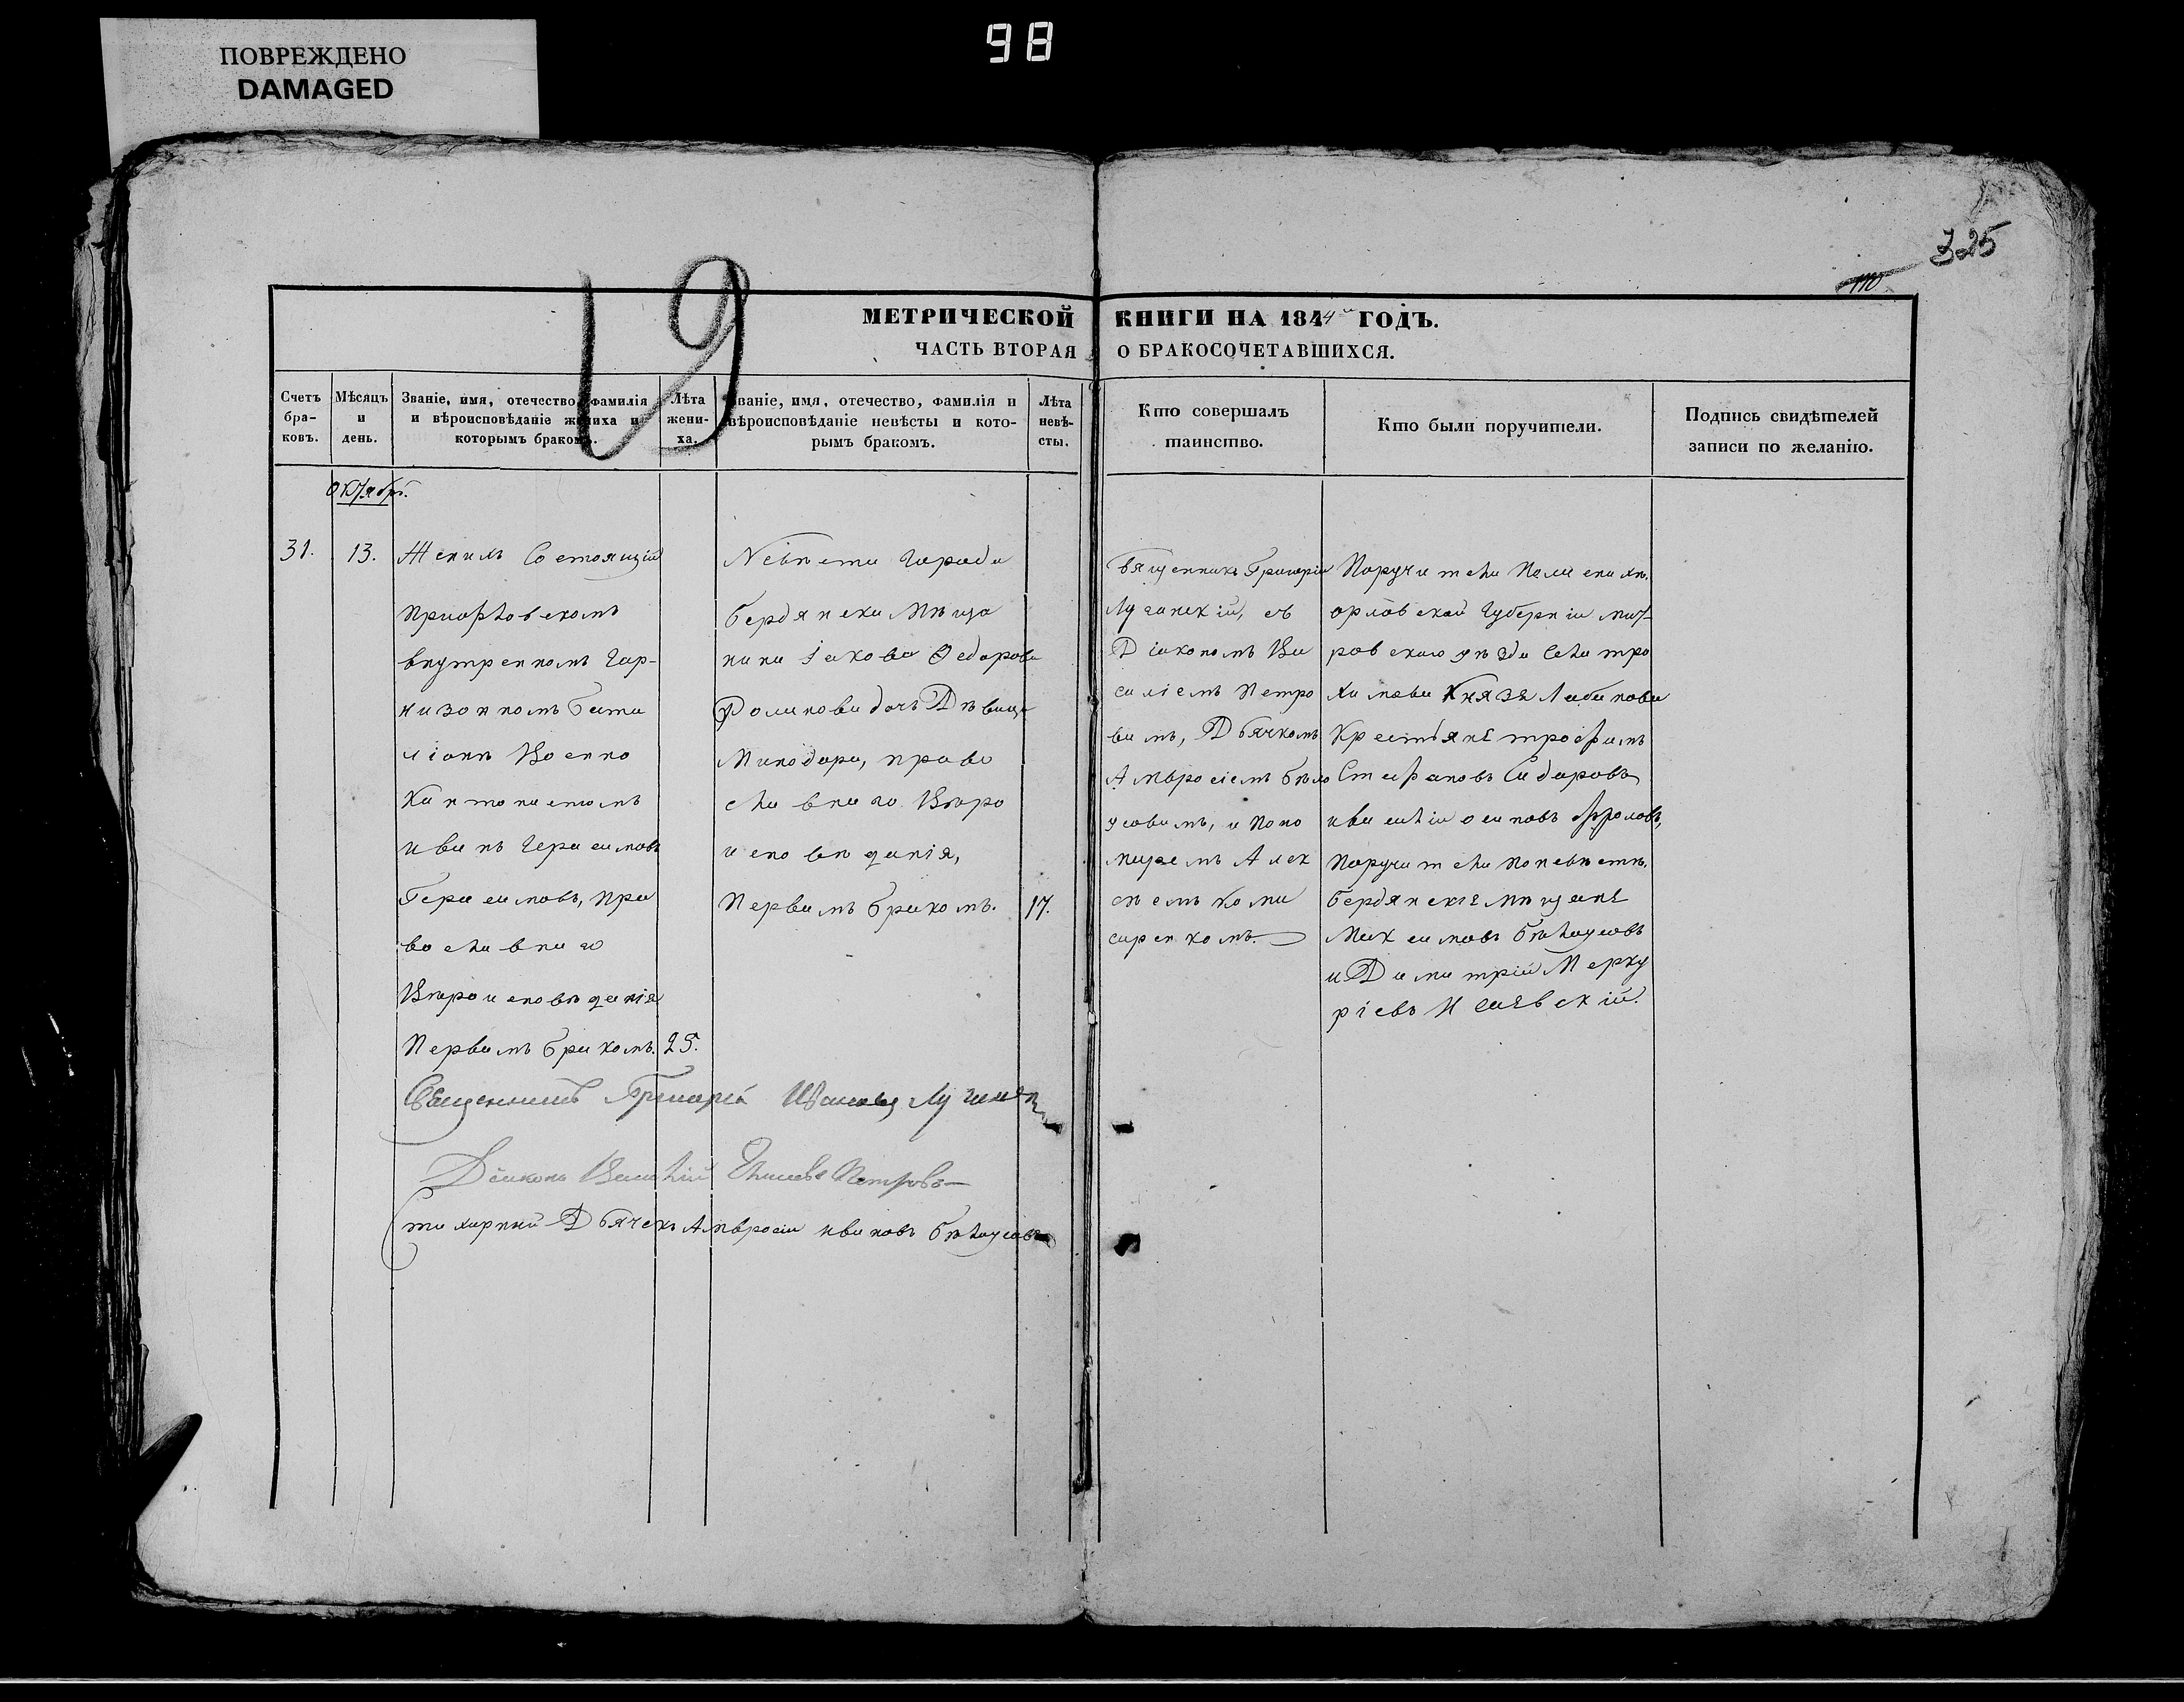 ПОВРЕЖДЕНО
DAMAGED
98
325
110
19
МЕТРИЧЕСКОЙ КНИГИ НА 1844й ГОДЪ.
ЧАСТЬ ВТОРАЯ О БРАКОСОЧЕТАВШИХСЯ.
Счетъ
бра-
ковъ.
Мѣсяцъ
и
день.
Званіе, имя, отечество, фамилія
и вѣроисповѣданіе жениха и
которымъ бракомъ.
Лѣта
жени-
ха.
Званіе, имя, отечество, фамилія и
вѣроисповѣданіе невѣсты и кото-
рымъ бракомъ.
Лѣта
невѣ-
сты.
Кто совершалъ
таинство.
Кто были поручители.
Подпись свидѣтелей
записи по желанію.
октября.
31.
13.
Женихъ Состоящій
приорловскомъ
внутренномъ гар-
низонномъ бата
ліонѣ Военно
Кантонистомъ
иванъ герасимовъ
Герасимовъ, пра
вославнаго
Вѣроисповѣданія
Первымъ бракомъ.
25.
Невѣста города
бердянска мѣща
нина іакова Федорова
Романова дочь Дѣвица
Минодора, право
славнаго Вѣро
исповѣданія,
Первымъ бракомъ.
17.
Священникъ Григорій
Луганскій, съ
Діакономъ Ва
силіемъ Петро
вымъ, Дьячкомъ
Амвросіемъ бѣло
усовымъ, и Поно
маремъ Алек
сѣемъ коми
саренкомъ.
Поручители Пожениху.
орловской губерніи
ровскаго уѣзда Села тро
Князя
Крестьяне трофимъ
Стефановъ Сидоровъ
ивасилій осиповъ Фроловъ,
Поручители Поневѣстѣ.
бердянскіе мѣщане
Максимовъ бѣлоусовъ
и Димитрій Мерку
ріевъ
Священникъ Григорій Ивановъ
Діаконъ Василій Петровъ
Стихарный Дьячекъ Амвросій ивановъ бѣлоусовъ